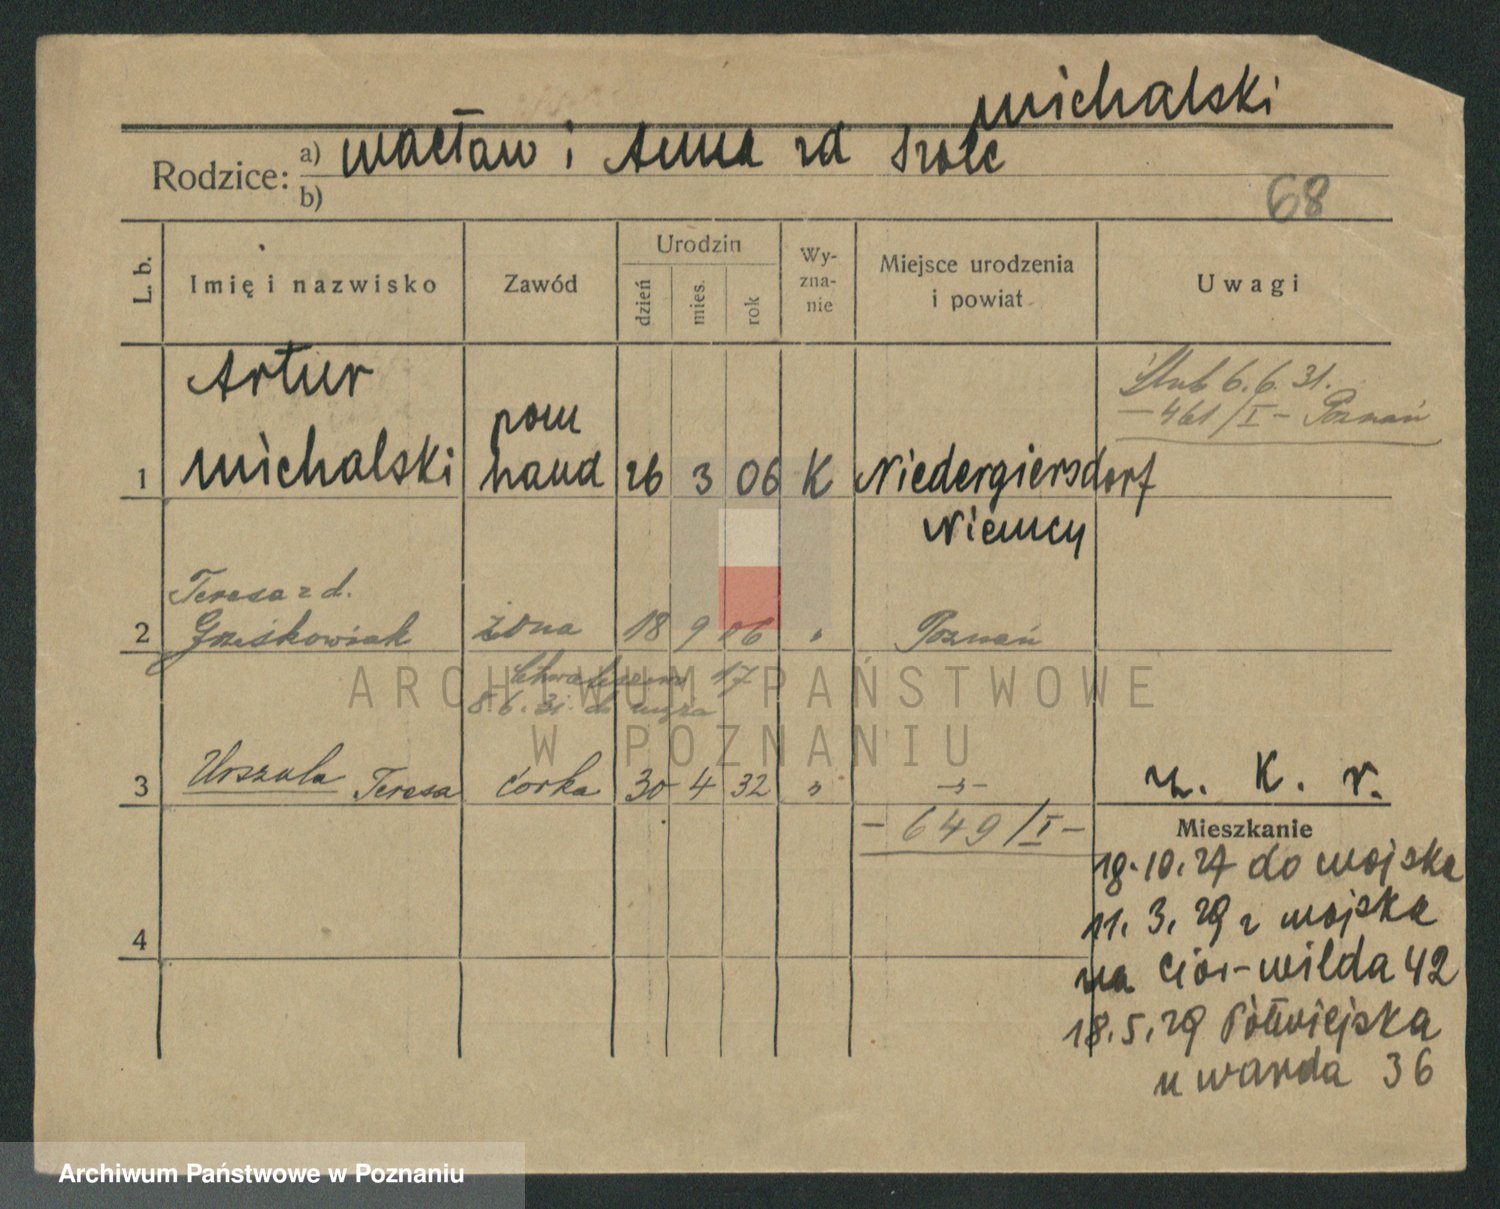 Michalski
Rodzice: a) Wacław i Anna zd Szolc
b)
68
L. b.
Imię i nazwisko
Zawód
Urodzin
dzień
mies.
rok
Wy-
zna-
nie
Miejsce urodzenia
i powiat
Uwagi
Ślub 6.6.31.
- 461/I - Poznań
Artur
pom
1 Michalski hand 26 3 06 K Niedergiersdorf
Niemcy
Teresa z d.
2 Grześkowiak żona 18 9 06 " Poznań
Chwaliszewo 17
8.6.31. do męża
3 Urszula Teresa córka 30 4 32 " -"-
z. K. r.
- 649/I -
Mieszkanie
18.10.27 do wojska
11.3.29 z wojska
4
na Gór-Wilda 42
18.5.29 Półwiejska
u Warda 36
ARCHIWUM PAŃSTWOWE
W POZNANIU
Archiwum Państwowe w Poznaniu